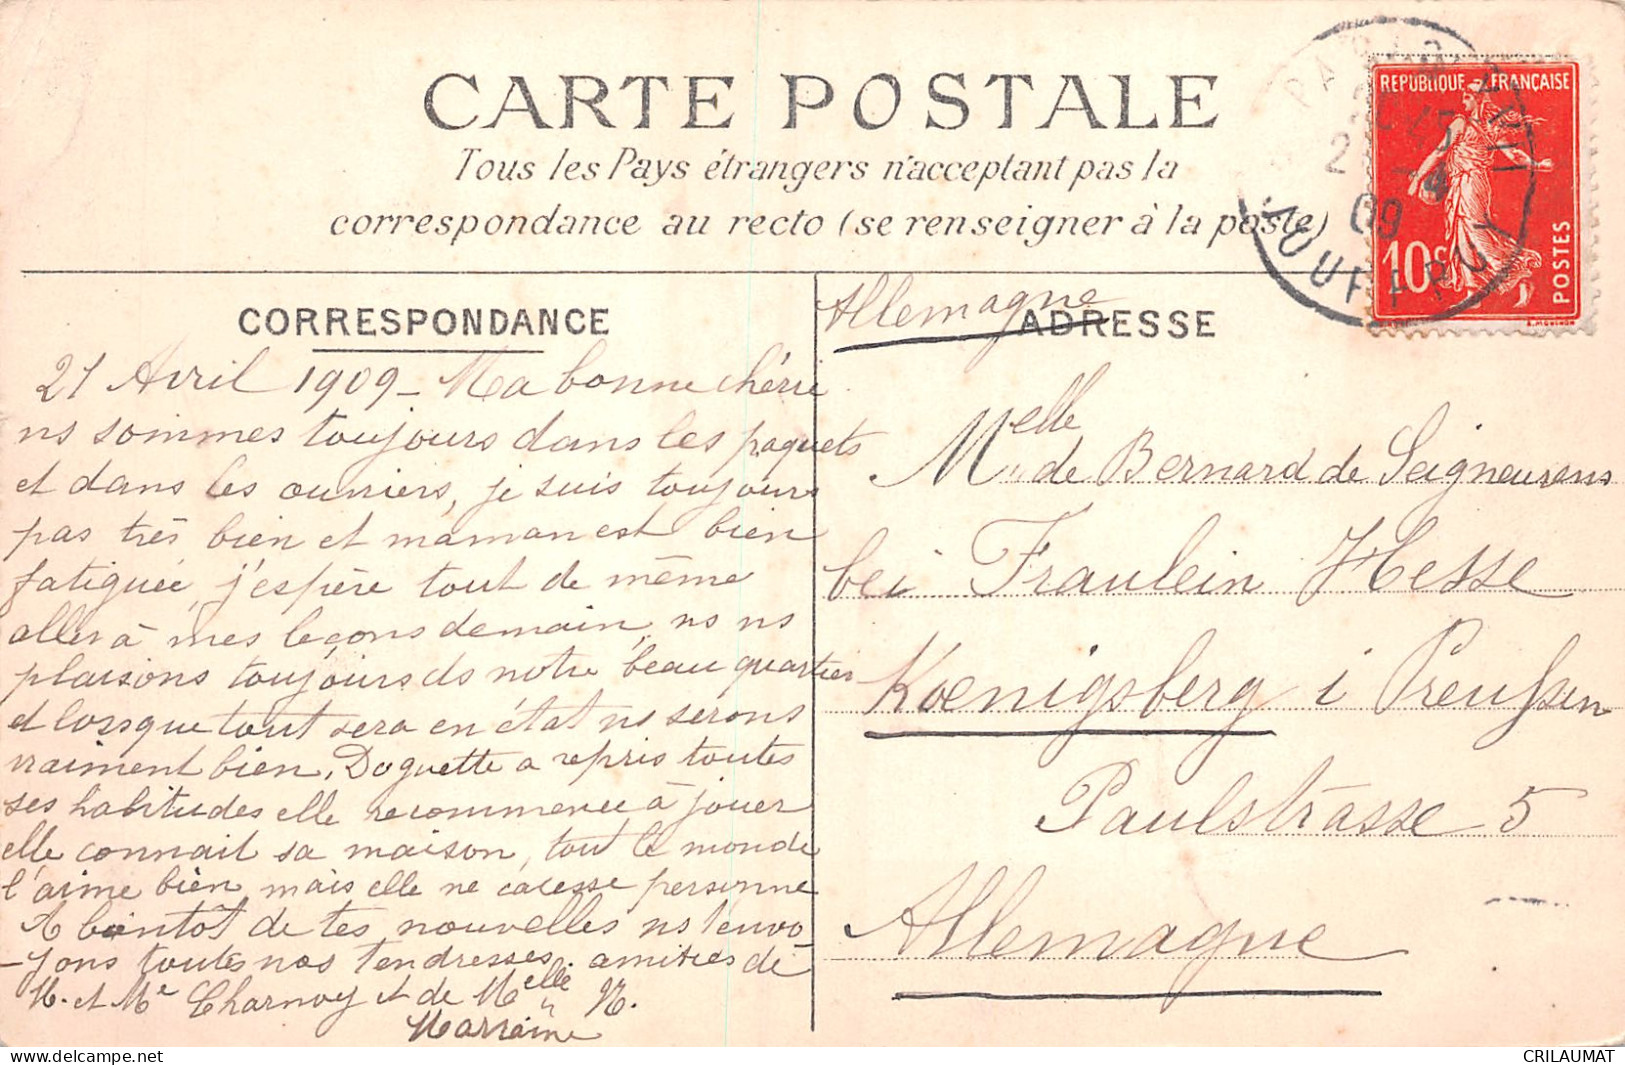 CARTE POSTALE
Tous les Pays étrangers n'acceptant pas la
correspondance au recto (se renseigner à la poste)
REPUBLIQUE FRANÇAISE
10c
POSTES
09
CORRESPONDANCE
21 Avril 1909 - Ma bonne chérie
ns sommes toujours dans les paquets
et dans les ouvriers, je suis toujours
pas très bien et maman est bien
fatiguée, j'espère tout de même
aller à mes leçons demain, ns ns
plaisons toujours ds notre beau quartier
et lorsque tout sera en état ns serons
vraiment bien. Doguette a repris toutes
ses habitudes elle recommence à jouer
elle connait sa maison, tout le monde
l'aime bien, mais elle ne caresse personne
A bientôt de tes nouvelles ns t'envo-
-yons toutes nos tendresses. amitiés de
M. et Me Charnoy et de Melle N.
Marraine
Allemagne
ADRESSE
Melle de Bernard de Seigneurens
bei Fraulein Hesse
Koenigsberg i Preußen
Paulstrasse 5
Allemagne
delcampe.net
CRILAUMAT